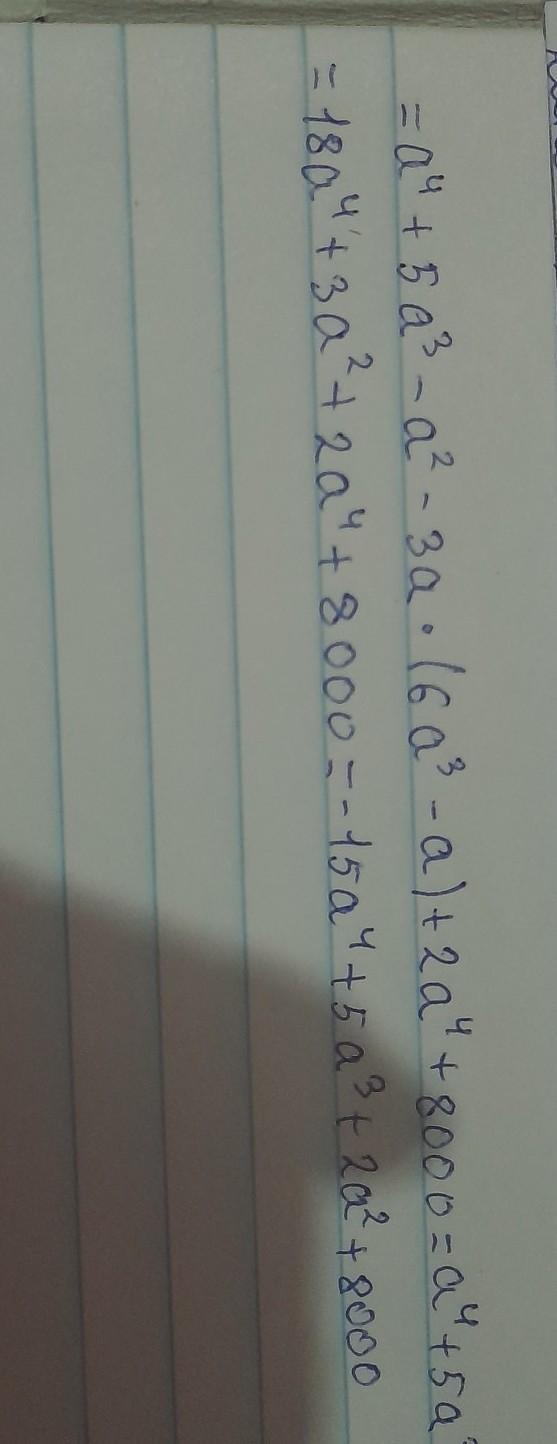 = a⁴ + 5a³ - a² - 3a · (6a³ - a) + 2a⁴ + 8000 = a⁴ + 5a
= 18a⁴ + 3a² + 2a⁴ + 8000 = -15a⁴ + 5a³ + 2a² + 8000